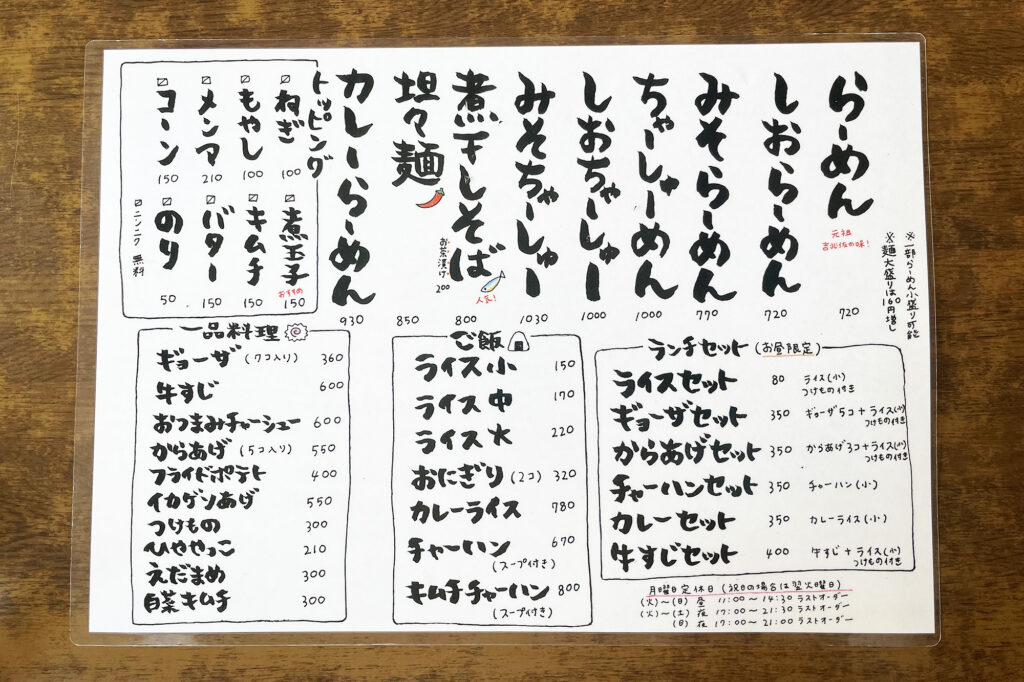 らーめん
元祖
吉北佐の味!
720
しおらーめん
720
みそらーめん
770
ちゃーしゅーめん
1000
しおちゃーしゅー
1000
みそちゃーしゅー
1030
煮干しそば
人気!
800
お茶漬け
200
坦々麺
850
カレーらーめん
930
※一部らーめん小盛り可能
※麺大盛りは160円増し
トッピング
☑ねぎ
100
☑もやし
100
☑メンマ
210
☑コーン
150
☑煮玉子
おすすめ
150
☑キムチ
150
☑バター
150
☑のり
50
☑ニンニク 無料
一品料理
ギョーザ(7コ入り) 360
牛すじ 600
おつまみチャーシュー 600
からあげ(5コ入り) 550
フライドポテト 400
イカゲソあげ 550
つけもの 300
ひややっこ 210
えだまめ 300
白菜キムチ 300
ご飯
ライス小 150
ライス中 170
ライス大 220
おにぎり(2コ) 320
カレーライス 780
チャーハン 670
(スープ付き)
キムチチャーハン 800
(スープ付き)
ランチセット(お昼限定)
ライスセット 80 ライス(小)
つけもの付き
ギョーザセット 350 ギョーザ5コ+ライス(小)
つけもの付き
からあげセット 350 からあげ3コ+ライス(小)
つけもの付き
チャーハンセット 350 チャーハン(小)
カレーセット 350 カレーライス(小)
牛すじセット 400 牛すじ+ライス(小)
つけもの付き
月曜日定休日(祝日の場合は翌火曜日)
(火)~(日) 昼 11:00~14:30 ラストオーダー
(火)~(土) 夜 17:00~21:30 ラストオーダー
(日) 夜 17:00~21:00 ラストオーダー